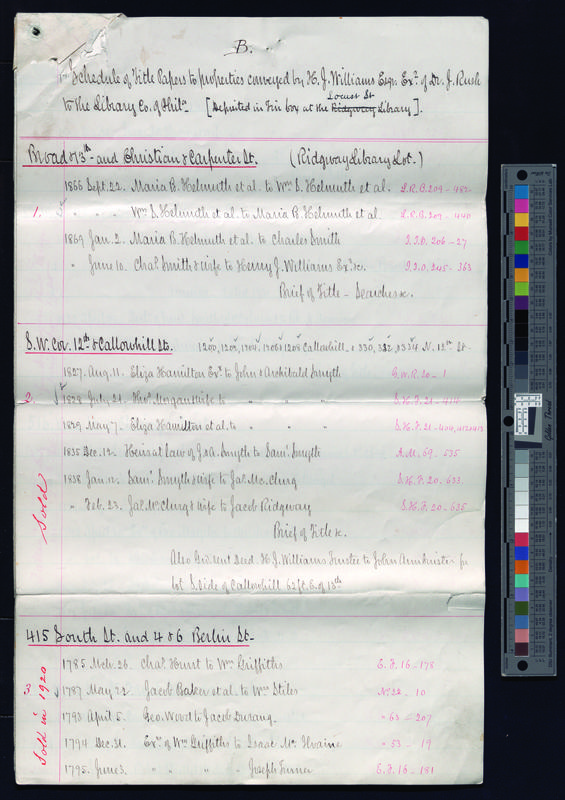 B.
Schedule of Title Papers to properties conveyed by H. J. Williams Esqr. Exr. of Dr. J. Rush
Locust St
to the Library Co. of Phila [Deposited in Fire box at the Ridgway Library].
Broad & 13th and Christian & Carpenter St. (Ridgway Library Lot.)
1866 Sept. 22. Maria B. Helmuth et al. to Wm S. Helmuth et al. L.R.B. 209 - 482
1. " " Wm S. Helmuth et al. to Maria B. Helmuth et al. L.R.B. 209 - 440
1869 Jan. 2. Maria B. Helmuth et al. to Charles Smith J.T.O. 206 - 27
" June 10. Chas. Smith & wife to Henry J. Williams Exr. &c. J.T.O. 245 - 363
Brief of Title - Searches &c.
S.W. Cor. 12th & Callowhill Sts. 1200, 1202, 1204, 1206 & 1208 Callowhill, & 330, 332, & 334 N. 12th St-
1827. Aug. 11. Eliza Hamilton Exx to John & Archibald Smyth G.W.R. 20 - 1
2. 1828 July 21. Thos. Morgan & wife to " " " S.H.F. 21 - 414
1829 May 7. Eliza Hamilton et al. to " " " S.H.F. 21 -
1835 Dec. 12. Heirs at Law of J. & A. Smyth to Saml. Smyth A.M. 69 - 535
1838 Jan. 12. Saml. Smyth & wife to Jas. Mc.Clurg S.H.F. 20 - 633
" Feb. 23. Jas. McClurg & wife to Jacob Ridgway S.H.F. 20 - 635
Sold
Brief of Title &c.
Also Grd. rent deed. H. J. Williams Trustee to John Armbruster for
lot S. side of Callowhill 62 ft. E. of 13th
415 South St. and 4 & 6 Berlin St-
1785 Mch. 26. Chas. Hunt to Wm Griffiths E.F. 16 - 178
3. 1787 May 22. Jacob Baker et al. to Wm Stiles No. 22 - 10
1793 April 5. Geo. Wood to Jacob Durang. " 63 - 207
1794 Dec. 31. Exr. of Wm Griffiths to Isaac Mc. Ilvaine " 53 - 19
1795. June 3. " " " Joseph Turner E.F. 16 - 181
Sold in 1920